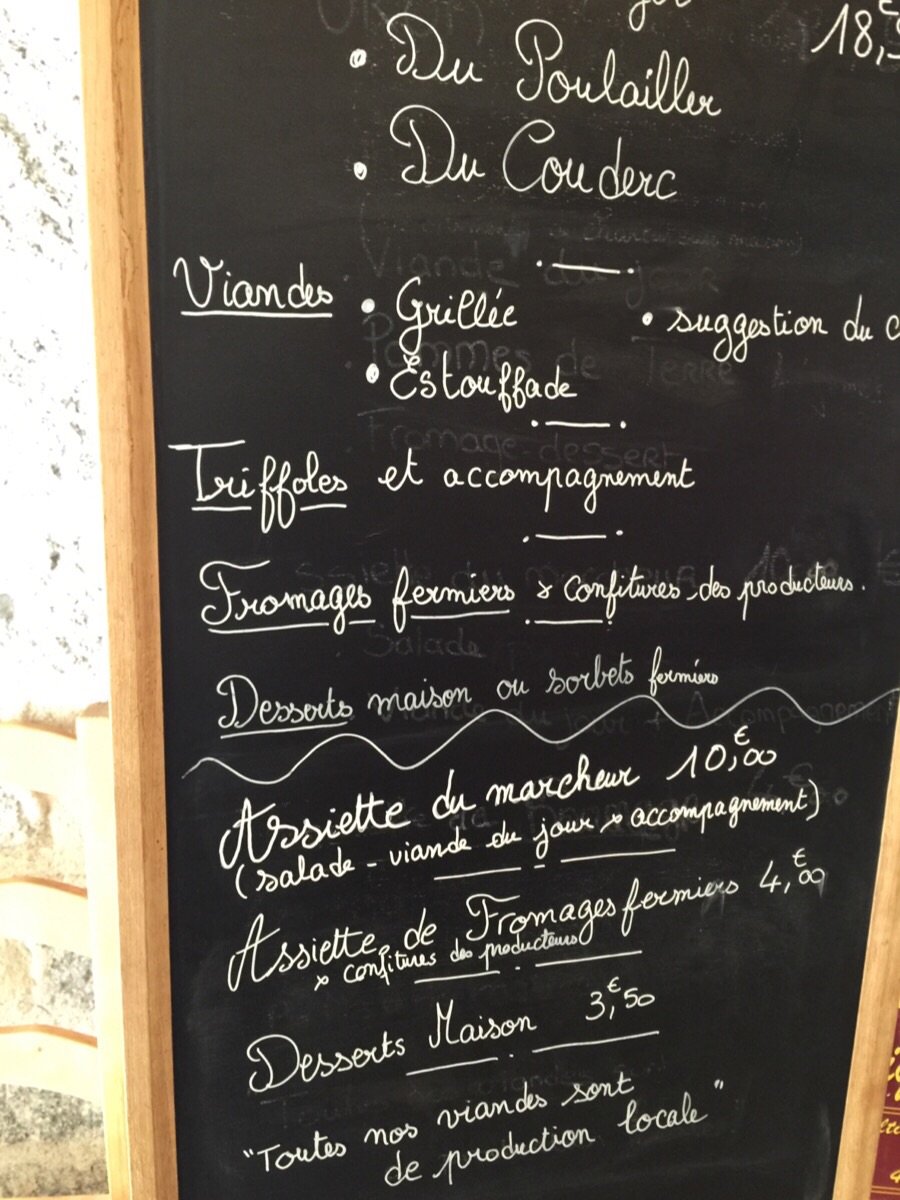 18,
• Du Poulailler
• Du Couderc
Viandes • Grillée • suggestion du
• Estouffade
Triffoles et accompagnement
Fromages fermiers & Confitures des producteurs.
Desserts maison ou sorbets fermiers
Assiette du marcheur 10,€00
(salade - viande du jour & accompagnement)
Assiette de Fromages fermiers 4,€00
& confitures des producteurs
Desserts Maison 3,€50
"Toutes nos viandes sont
de production locale"